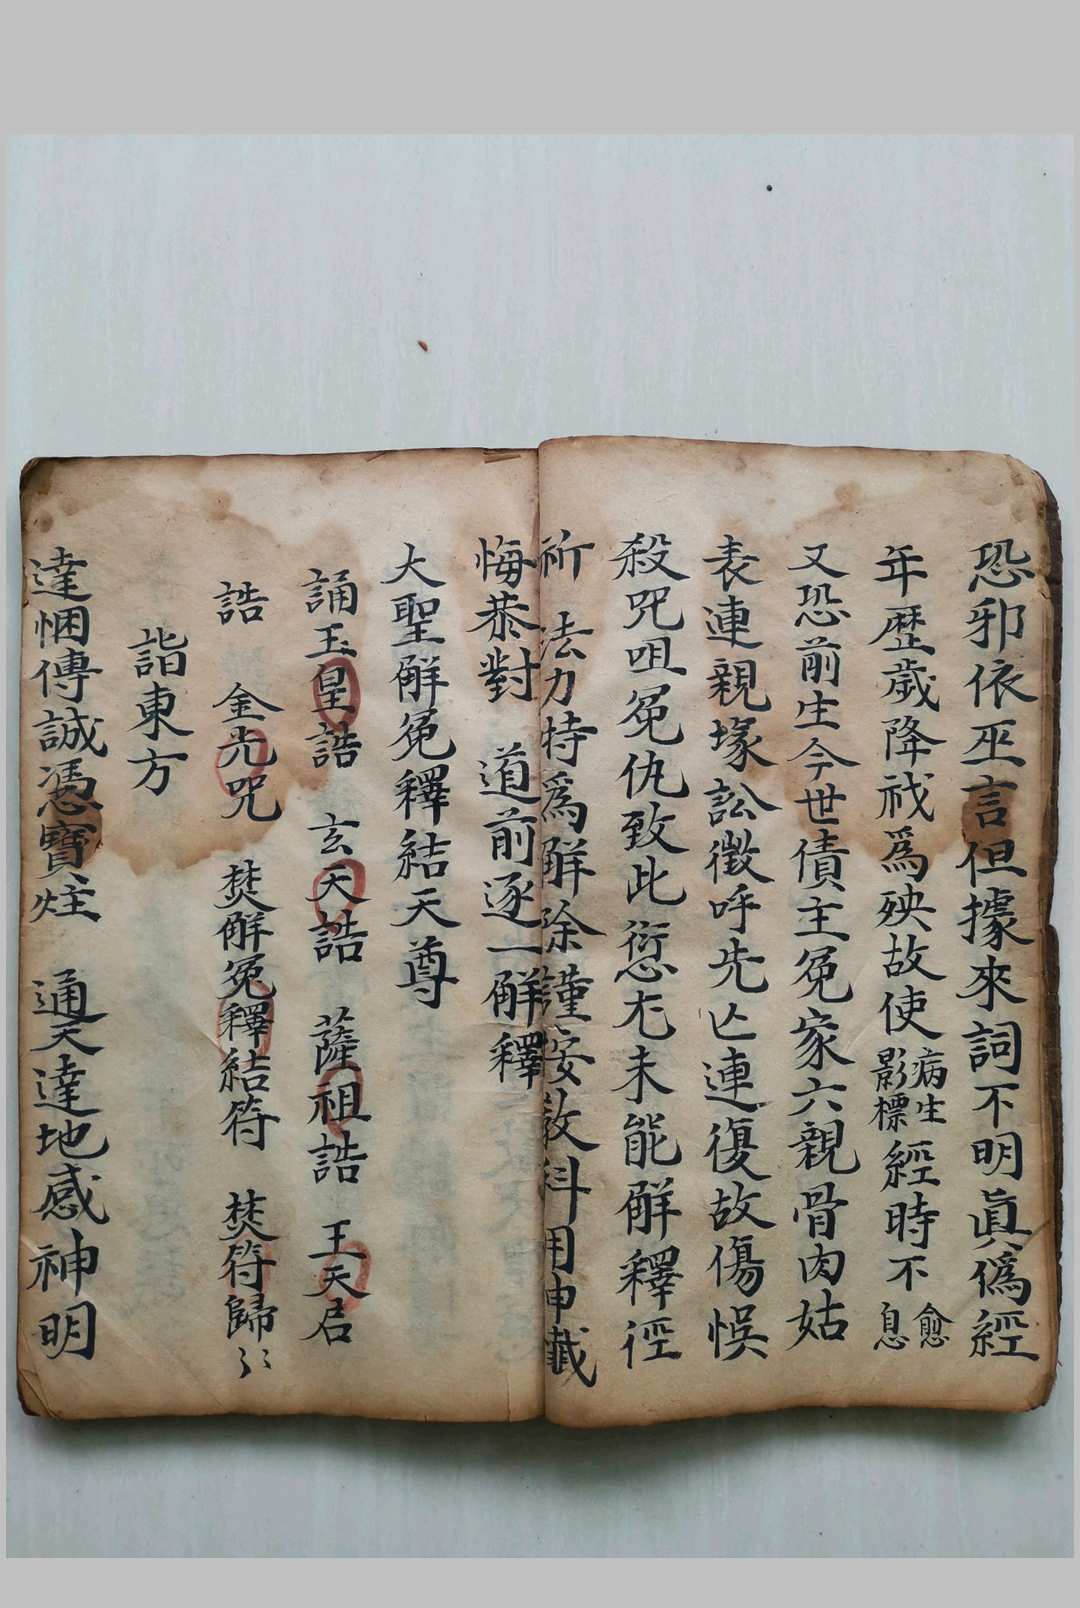 恐邪依巫言但據來詞不明眞僞經
年歷歲降祅爲殃故使病生影標經時不愈息
又恐前生今世債主冤家六親骨肉姑
表連親塚訟徵呼先亡連復故傷悞
殺咒咀冤仇致此愆尤未能觧釋徑
祈 法力特爲觧除謹按教科用申懺
悔恭對 道前逐一觧釋
大聖觧冤釋結天尊
誦玉皇誥 玄天誥 薩祖誥 王天君
誥 金光咒 焚觧冤釋結符 焚符歸ミ
詣東方
達悃傳誠憑寶炷 通天達地感神明